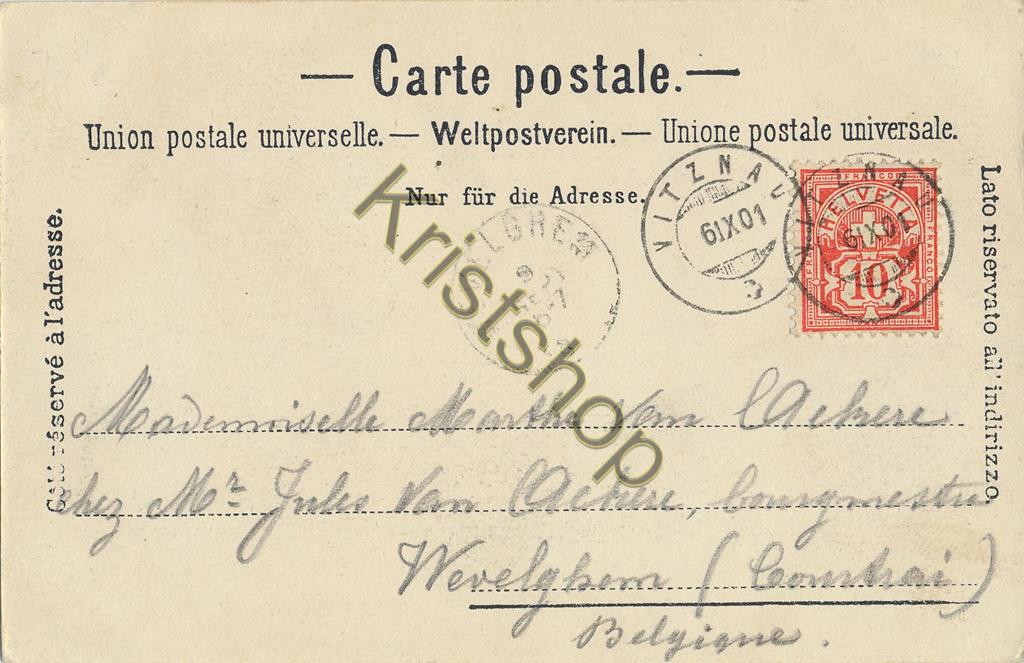 — Carte postale. —
Union postale universelle. — Weltpostverein. — Unione postale universale.
Nur für die Adresse.
Côté réservé à l'adresse.
Lato riservato all'indirizzo.
VITZNAU
6 IX 01
VITZNAU
6 IX 01
FRANCO
HELVETIA
FRANCO
FRANCO
10
LGHEM
Kristshop
Mademoiselle Marthe Van Ackere
chez Mr. Jules Van Ackere, bourgmestre
Wevelghem (Courtrai)
Belgique.